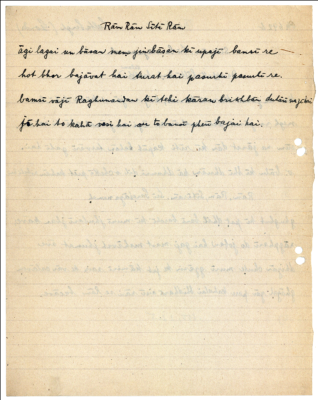 Rām Rām Sītā Rām
āgi lagei un bāsan men jin bāsan kī upajī bansī re
hot bhor bajāvat hai surat hai pasurī pasurī re.
bansī vājī Raghunandan kī tehi kāran brishbhān
jo hai so kahā vasi hai ab to bansī phir bajāi hai.